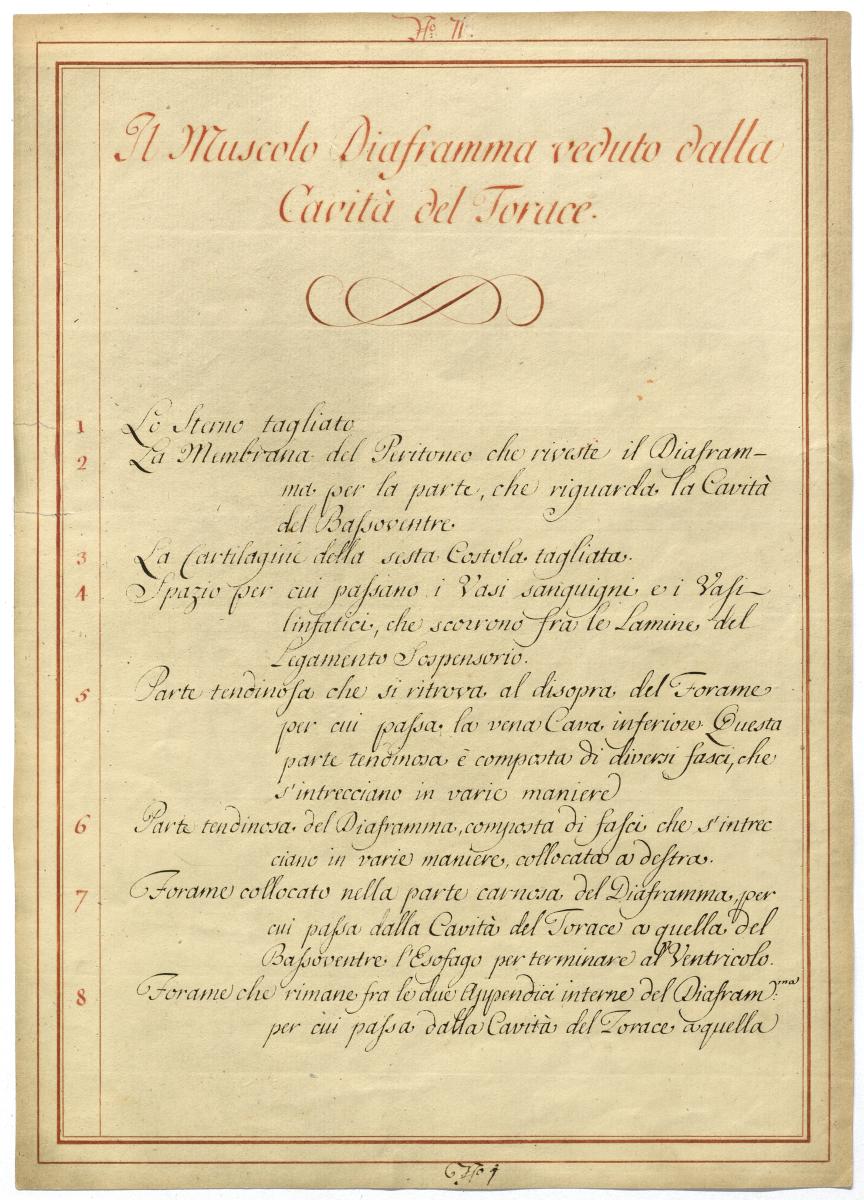 No. 71.
Il Muscolo Diaframma veduto dalla
Cavità del Torace.
1 Lo Sterno tagliato
2 La Membrana del Peritoneo che riveste il Diafram-
ma per la parte, che riguarda la Cavità
del Baſsoventre
3 La Cartilagine della sesta Costola tagliata.
4 Spazio per cui paſsano i Vasi sanguigni e i Vaſi
linfatici, che scorrono fra le Lamine del
Legamento Sospensorio.
5 Parte tendinoſa che si ritrova al disopra del Forame
per cui paſsa la vena Cava inferiore. Questa
parte tendinosa è composta di diversi fasci, che
s'intrecciano in varie maniere
6 Parte tendinosa del Diaframma, composta di fasci che s'intrec
ciano in varie maniere, collocata a deſtra.
7 Forame collocato nella parte carnosa del Diaframma, per
cui paſsa dalla Cavità del Torace a quella del
Baſsoventre l'Esofago per terminare al Ventricolo.
8 Forame che rimane fra le due Appendici interne del Diafram:ma
per cui paſsa dalla Cavità del Torace a quella